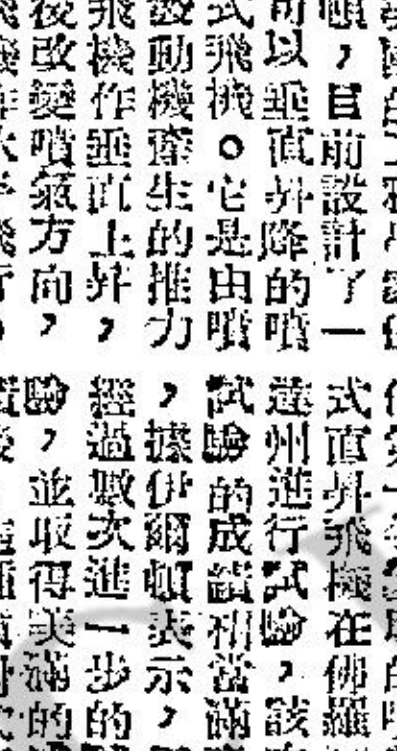 頓，目前設計了一
可以垂直昇降的噴
式飛機。它是由噴
發動機產生的推力
飛機作垂直上昇，
後改變噴氣方向，
式直昇飛機在佛羅
達州進行試驗，該
試驗的成績相當滿
，據伊爾頓表示，
經過數次進一步的
驗，並取得美滿的